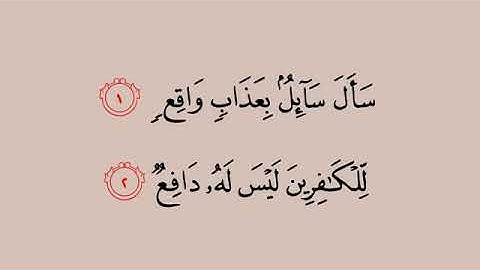 سَأَلَ سَآئِلُۢ بِعَذَابٖ وَاقِعٖ ١
لِّلۡكَٰفِرِينَ لَيۡسَ لَهُۥ دَافِعٞ ٢